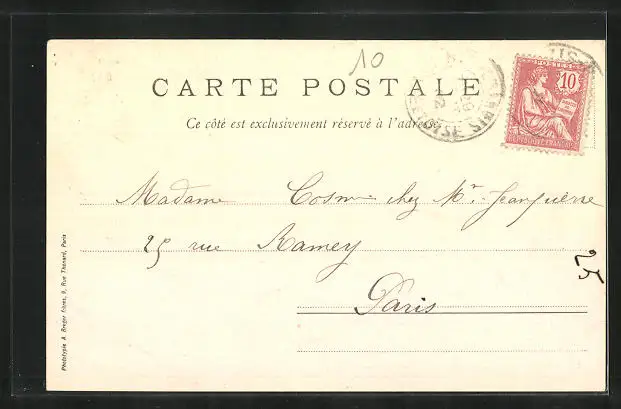 10
CARTE POSTALE
Ce côté est exclusivement réservé à l'adresse
POSTES
10
REPUBLIQUE FRANÇAISE
PARIS
Madame Cosm chez Mr. Jeanpierre
25 rue Ramey
Paris
25
Phototypie A. Breger frères, 9, Rue Thénard, Paris